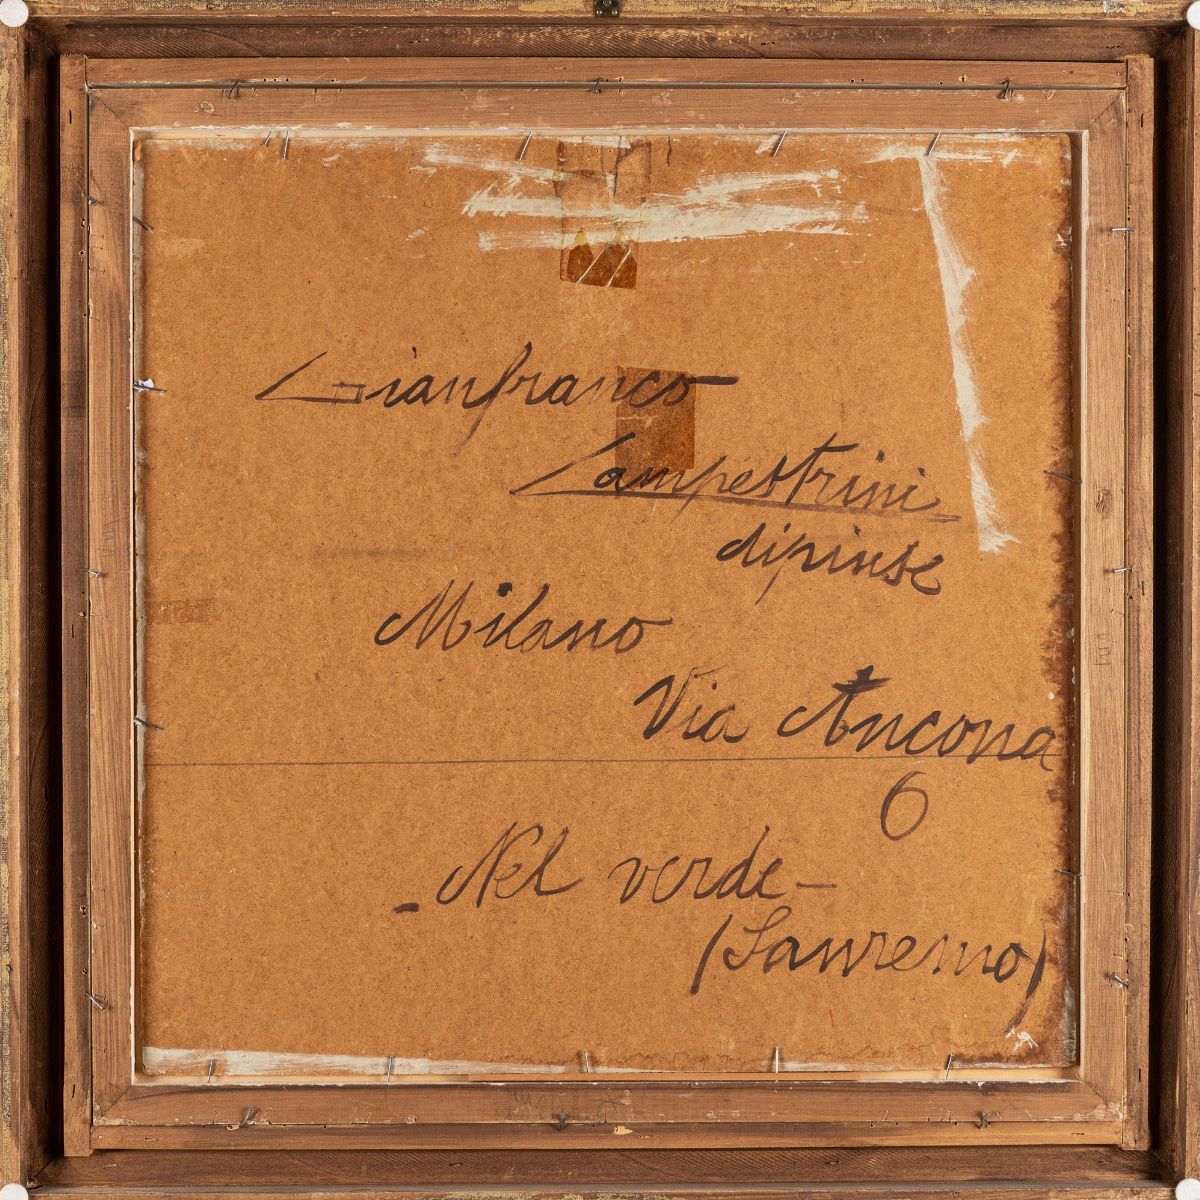 Gianfranco
Campestrini
dipinse
Milano
Via Ancona
6
- Nel verde -
(Sanremo)